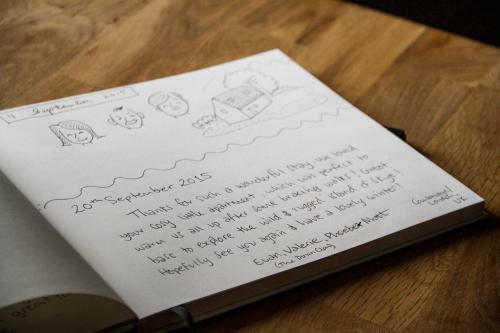 11 September 2015
20th September 2015
Thanks for such a wonderful stay. We loved
your cosy little apartment which was perfect to
warm us all up after some bracing walks! Great
base to explore the wild & rugged island of Skye!
Hopefully see you again & have a lovely winter!
Euan, Valerie, Phoebe
London
UK
great